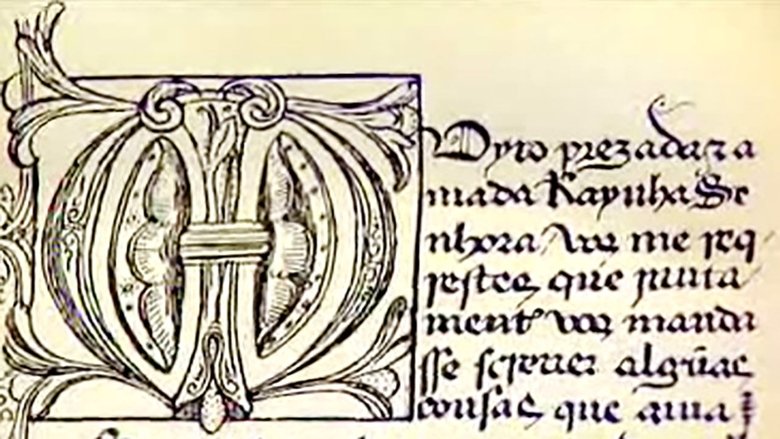 MUyto prezada ⁊ a
mada Raynha Se
nhora vos me req
restes que junta
ment̉ vos manda
sse screuer algũas
cousas que auia